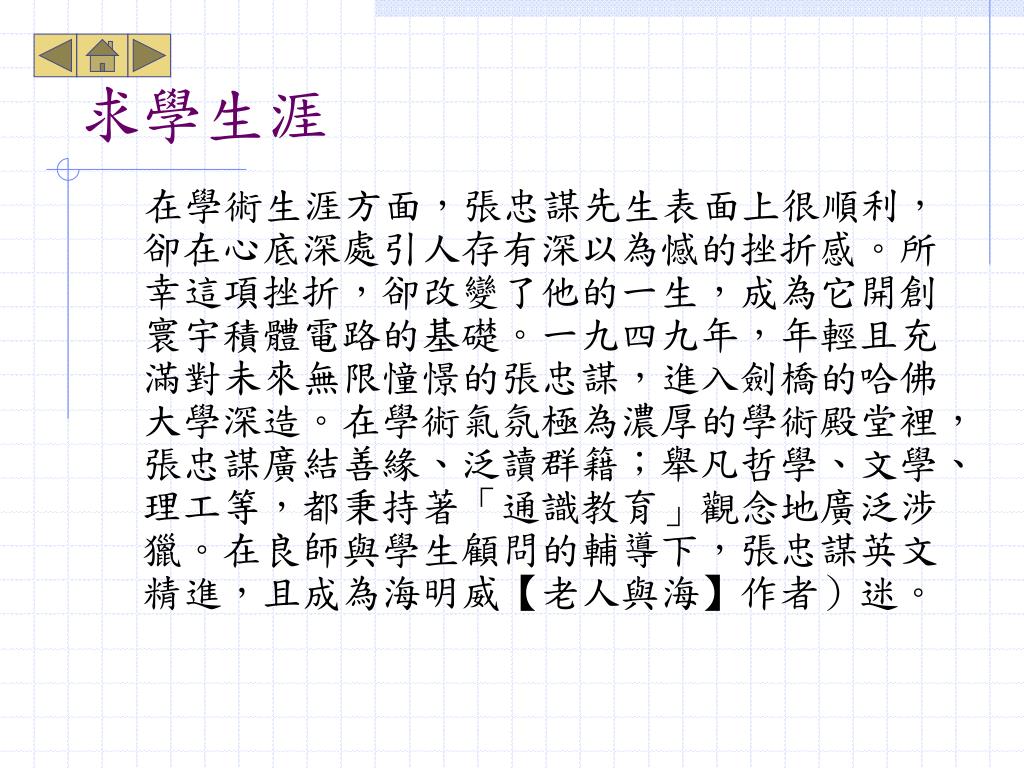 求學生涯
在學術生涯方面，張忠謀先生表面上很順利，
卻在心底深處引人存有深以為憾的挫折感。所
幸這項挫折，卻改變了他的一生，成為它開創
寰宇積體電路的基礎。一九四九年，年輕且充
滿對未來無限憧憬的張忠謀，進入劍橋的哈佛
大學深造。在學術氣氛極為濃厚的學術殿堂裡，
張忠謀廣結善緣、泛讀群籍；舉凡哲學、文學、
理工等，都秉持著「通識教育」觀念地廣泛涉
獵。在良師與學生顧問的輔導下，張忠謀英文
精進，且成為海明威【老人與海】作者）迷。